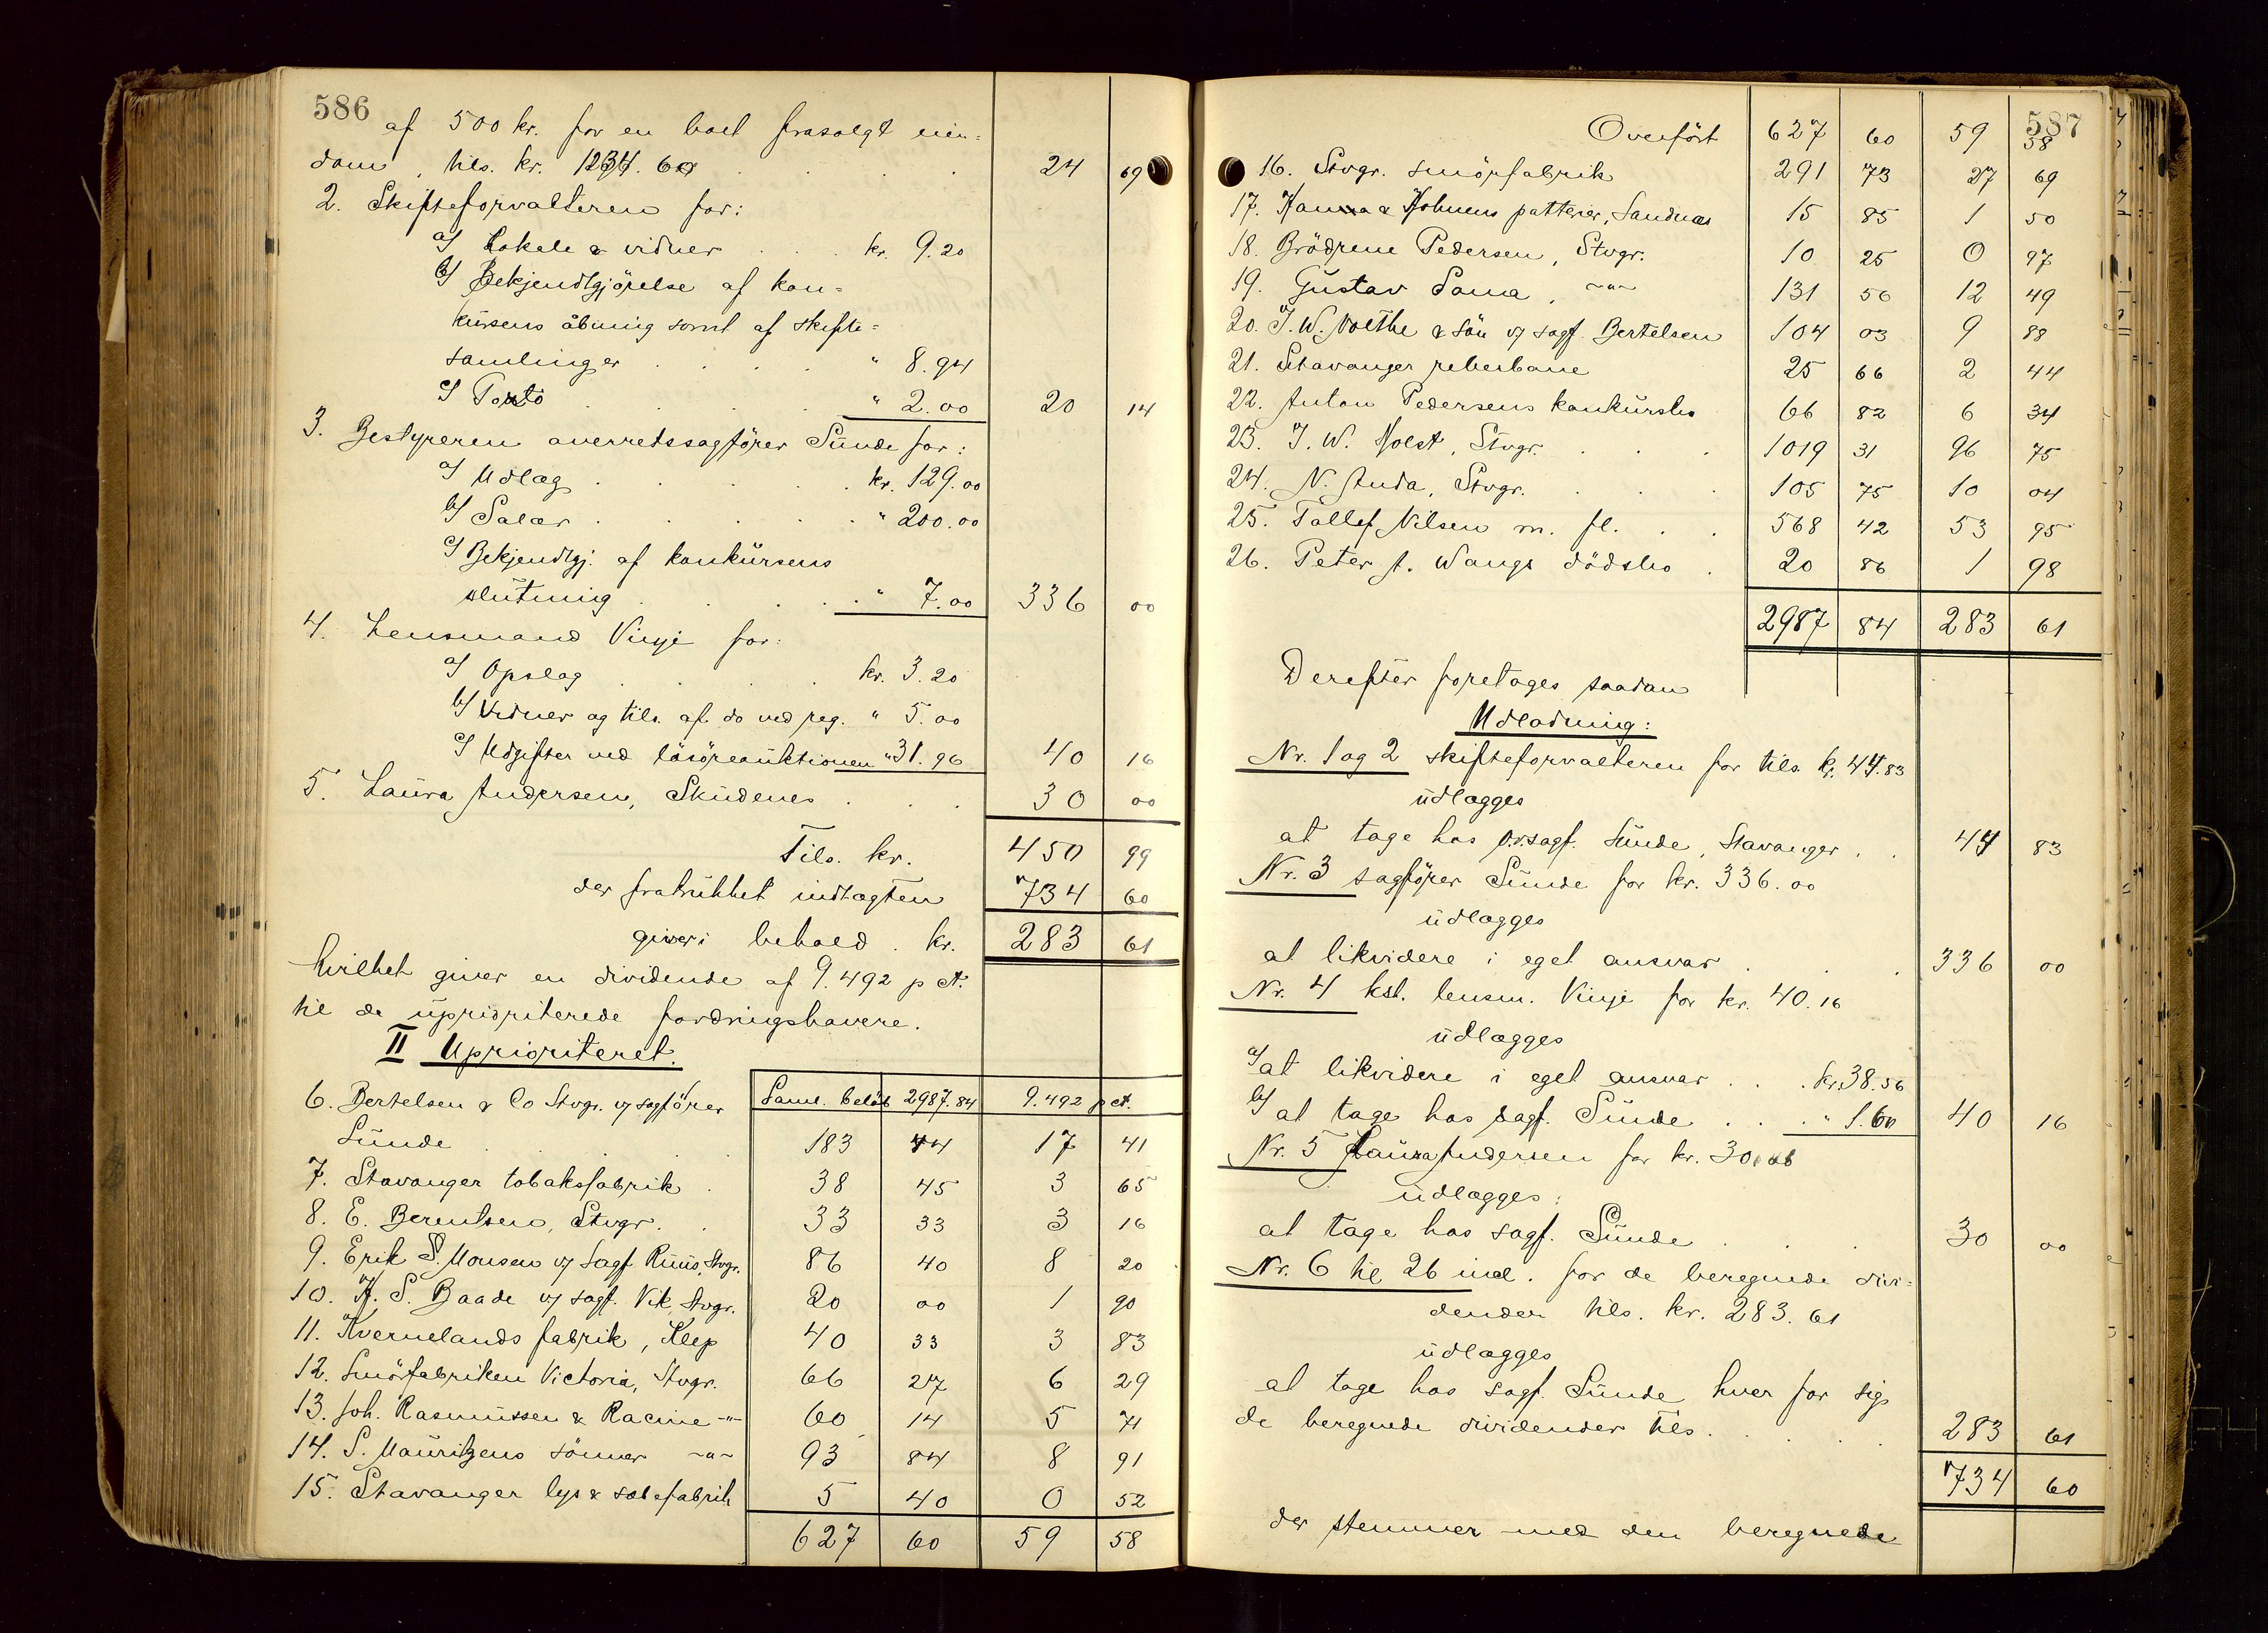 586
af 500 kr. for en boet frasolgt eien=
dom, tils. kr. 1234.60 . . . 24 69
2. Skifteforvalteren for:
a/ Lokale & vidner . . kr. 9.20
b/ Bekjendtgjörelse af kon=
kürsens åbning samt af skifte=
samlinger . . . . " 8.94
c/ Porto . . . . " 2.00 20 14
3. Bestyreren overretssagförer Sünde for:
a/ Udlæg . . . . kr. 129.00
b/ Salær . . . . " 200.00
c/ Bekjendtgj. af konkürsens
slütning . . . . " 7.00 336 00
4. Lensmand Vinje for:
a/ Opslag . . . . kr. 3.20
b/ Vidner og tils. af do ved reg. " 5.00
c/ Udgifter ved lösöreaüktionen " 31.96 40 16
5. Laüra Andersen, Sküdenes . . . 30 00
Tils. kr. 450 99
der fratrükket indtægten 734 60
giver i behold . kr. 283 61
hvilket giver en dividende af 9.492 p ct.
til de üprioriterede fordringshavere.
II Uprioriteret.
Saml. beløb 2987.84 9.492 p ct.
6. Bertelsen & Co Stvgr. v/ sagförer
Sünde . . . . 183 44 17 41
7. Stavanger tobaksfabrik . 38 45 3 65
8. E. Berentsen, Stvgr. . . 33 33 3 16
9. Erik S. Monsen v/ sagf. Rüüs, Stvgr. 86 40 8 20
10. K. S. Baade v/ sagf. Vik, Stvgr. 20 00 1 90
11. Kvernelands fabrik, Klep 40 33 3 83
12. Smörfabriken Victoria, Stvgr. 66 27 6 29
13. Joh. Rasmüssen & Racine -"- 60 14 5 71
14. S. Maüritzens sönner -"- 93 84 8 91
15. Stavanger lys & sæbefabrik 5 40 0 52
627 60 59 58
587
Overfört 627 60 59 58
16. Stvgr. smörfabrik 291 73 27 69
17. & potteri, Sandnæs 15 85 1 50
18. Brödrene Pedersen, Stvgr. 10 25 0 97
19. Güstav Sama, -"- 131 56 12 49
20. & sön v/ sagf. Bertelsen 104 03 9 88
21. Stavanger reberbane 25 66 2 44
22. Anton Pedersens konkürsbo 66 82 6 34
23. J. W. Holst, Stvgr. . . . 1019 31 96 75
24. N. Anda, Stvgr. . . . 105 75 10 04
25. Tollef Nilsen m. fl. . . 568 42 53 95
26. Peter A. Wangs dödsbo . 20 86 1 98
2987 84 283 61
Derefter foretoges saadan
Udlodning:
Nr. 1 og 2 skifteforvalteren for tils. kr. 44.83
üdlægges
at tage hos o.r.sagf. Sünde, Stavanger . . 44 83
Nr. 3 sagförer Sünde for kr. 336.00
üdlægges
at likvidere i eget ansvar . . . 336 00
Nr. 4 kst. lensm. Vinje for kr. 40.16
üdlægges
a/ at likvidere i eget ansvar . . . kr. 38.56
b/ at tage hos sagf. Sünde . . . " 1.60 40 16
Nr. 5 Laüra Andersen for kr. 30.00
üdlægges:
at tage hos sagf. Sünde . . . 30 00
Nr. 6 til 26 incl. for de beregnede divi=
dender tils. kr. 283.61
üdlægges
at tage hos sagf. Sünde hver for sig
de beregnede dividender tils. . . . . 283 61
734 60
der stemmer med den beregnede